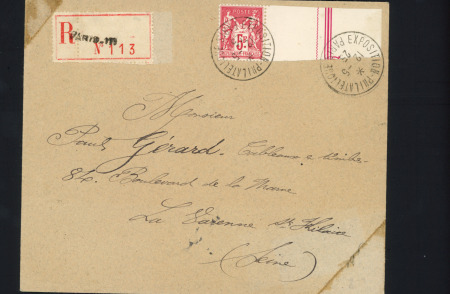 R
PARIS
N° 113
POSTES
5F
EXPOSITION PHILATÉLIQUE
EXPOSITION PHILATÉLIQUE PARIS
Monsieur
Paul Gérard. Tableaux
84. Boulevard de la Marne
La Varenne St Hilaire
(Seine)